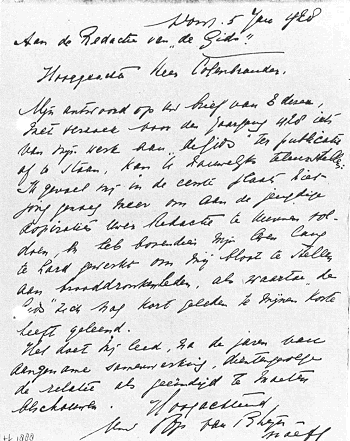 5 Jan 1928
Aan de Redactie van „de Gids".
Hooggeachte Heer Colenbrander,
Mijn antwoord op Uw brief van 2 dezer,
met verzoek voor den jaargang 1928 iets
van mijn werk aan „de Gids" ter publicatie
af te staan, kan U nauwelijks
Ik gevoel mij in de eerste plaats niet
jong genoeg meer om aan de jeugdige
aspiraties Uwer Redactie te kunnen vol-
doen, ik heb bovendien mijn leven lang
te hard gewerkt om mij bloot te stellen
aan als waartoe de
Gids" zich nog kort geleden te mijnen koste
heeft geleend.
Het doet mij leed, na de jaren van
aangename samenwerking, dientengevolge
de relatie als geëindigd te moeten
beschouwen. Hoogachtend,
Uw